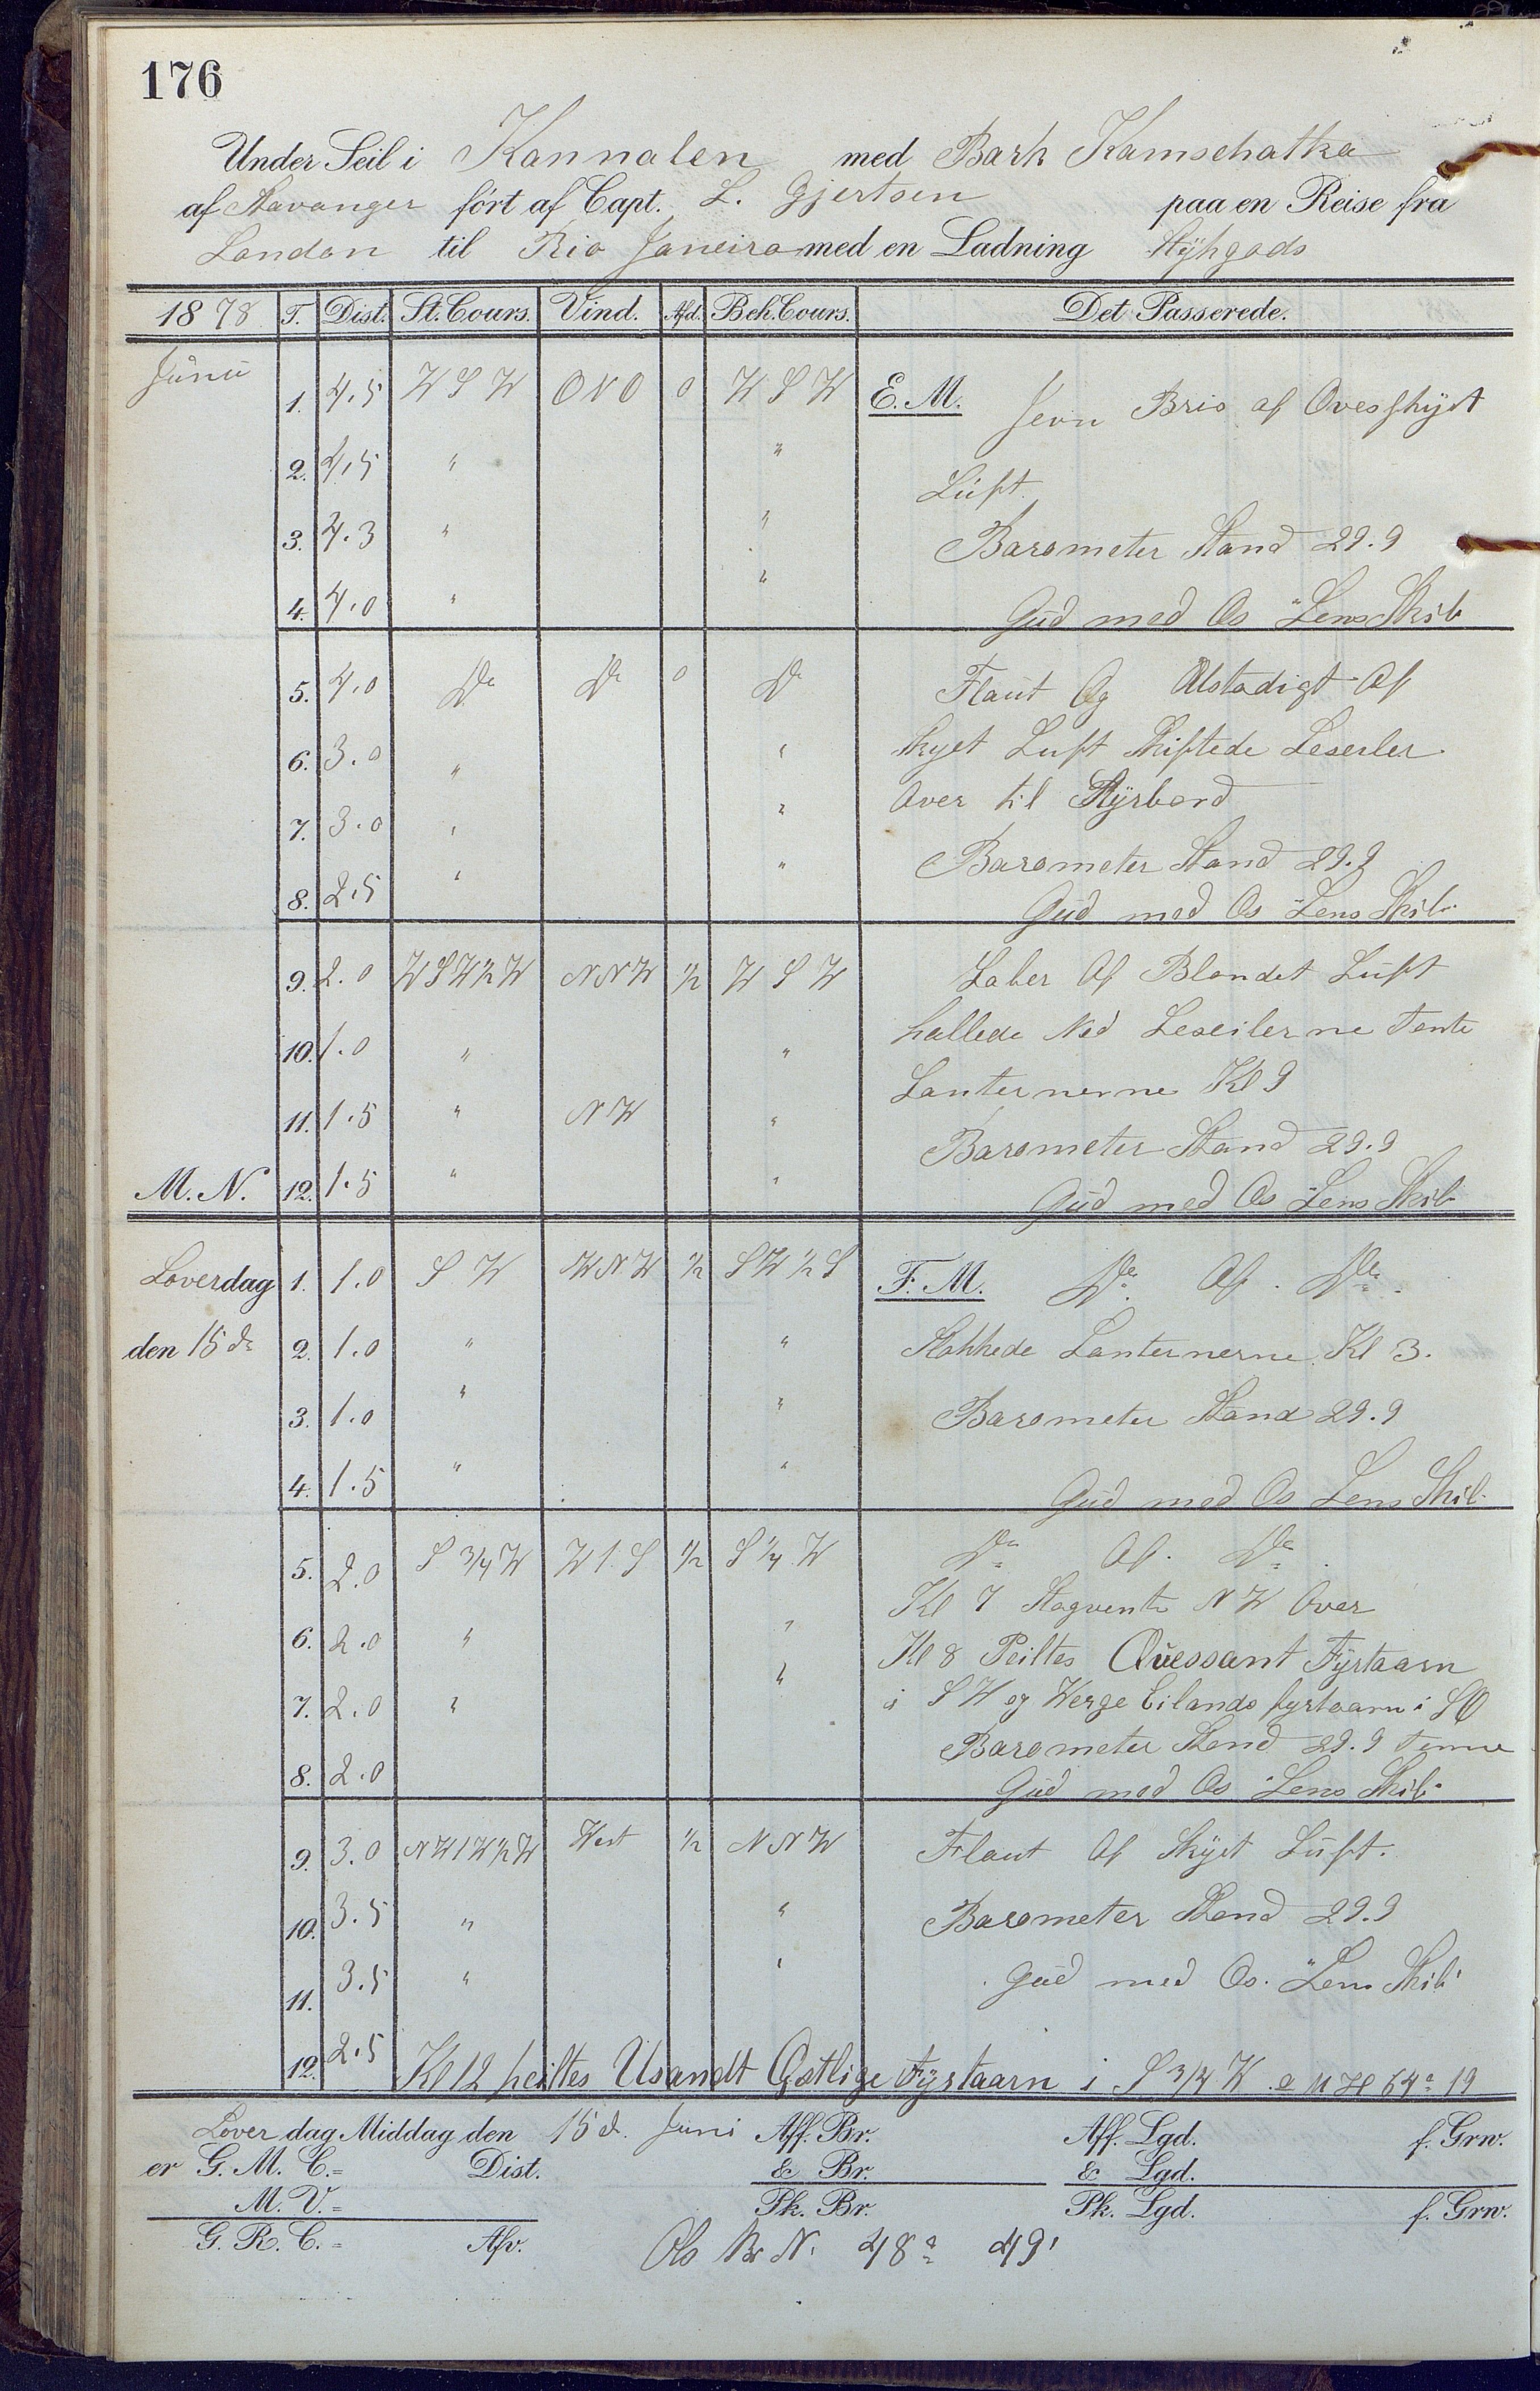 176
Under Seil i Kannalen med Bark Kamschatka
af Stavanger ført af Capt. L. Gjertsen paa en Reise fra
London til Rio Janeiro med en Ladning Stÿkgods
1878 T. Dist. St. Cours. Vind. Afd. Beh. Cours. Det Passerede.
Junii 1. 4.5 W S W O N O 0 W S W E. M. Jevn Bris af Overskÿet
2. 4.5 " " Lüft
3. 4.3 " " Barometer Stand 29.9
4. 4.0 " " Güd med Os Lens Skib
5. 4.0 Do Do 0 Do Flaut Og Ustadigt Af
6. 3.0 " " Skyet Luft Skiftede Leseiler
7. 3.0 " " Over til Stÿrbord
8. 2.5 " " Barometer Stand 29.9
Gud med Os Lens Skib
9. 2.0 W S W ½ W N N W ½ W S W Laber Af Blandet Luft
10. 1.0 " " hallede Ned Leseilerne Tente
11. 1.5 " N W " Lanternerne Kl 9
Barometer Stand 29.9
M. N. 12. 1.5 " " Güd med Os Lens Skib
Loverdag 1. 1.0 S W W N W ½ S W ½ S F. M. Do. Af. Do.
den 15 de 2. 1.0 " " Slokkede Lanternerne Kl 3.
3. 1.0 " " Barometer Stand 29.9
4. 1.5 " " Güd med Os Lens Skib
5. 2.0 S ¾ W W t. S ½ S ¼ W Do Af. Do
Kl 7 Stagvente N W Over
6. 2.0 " " Kl 8 Peiltes Quessant Fÿrtaarn
7. 2.0 " " i S W og Werge Eilands fyrtaarn i S O
Barometer Stand 29.9
8. 2.0 Gud med Os Lens Skib
9. 3.0 N W t W ½ W West ½ N N W Flaut Af Skÿet Lüft.
10. 3.5 " " Barometer Stand 29.9
11. 3.5 " " Gud med Os. Lens Skib
12. 2.5 Kl 12 peiltes Usandt Ostlige Fÿrtaarn i S ¾ W
Loverdag Middag den 15 d. Juni Aff. Br. Aff. Lgd. f. Grw.
er G. M. C.= Dist. & Br. & Lgd.
M. V.= Pk. Br. Pk. Lgd. f. Grw.
G. R. C.= Afv. Obs Br N. 48° 49'